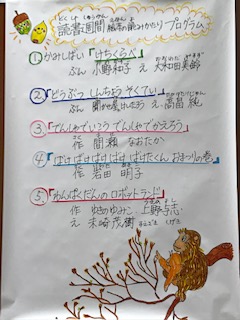 読書週間 読み聞かせ プログラム
① かみしばい 「けちくらべ」
ぶん 小野和子 え 大和田美鈴
② 「どうぶつ しんちょう そくてい」
ぶん 聞かせ屋。けいたろう え 高畠純
③ 「でんしゃでいこう でんしゃでかえろう」
作 間瀬 なおたか
④ 「ばけばけばけばけ ばけたくん おまつりの巻」
作 岩田 明子
⑤ 「わんぱくだんの ロボットランド」
作 ゆきのゆみこ 上野与志
え 末崎茂樹